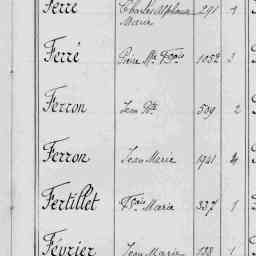 Ferré Charles Alphonse 291 1
Marie
Ferré Pierre Mie Fçois 1052 3
Ferron Jean Bte 509 2
Ferron Jean Marie 1941 4
Fertillet Fçois Marie 337 1
Février Jean Marie 138 1